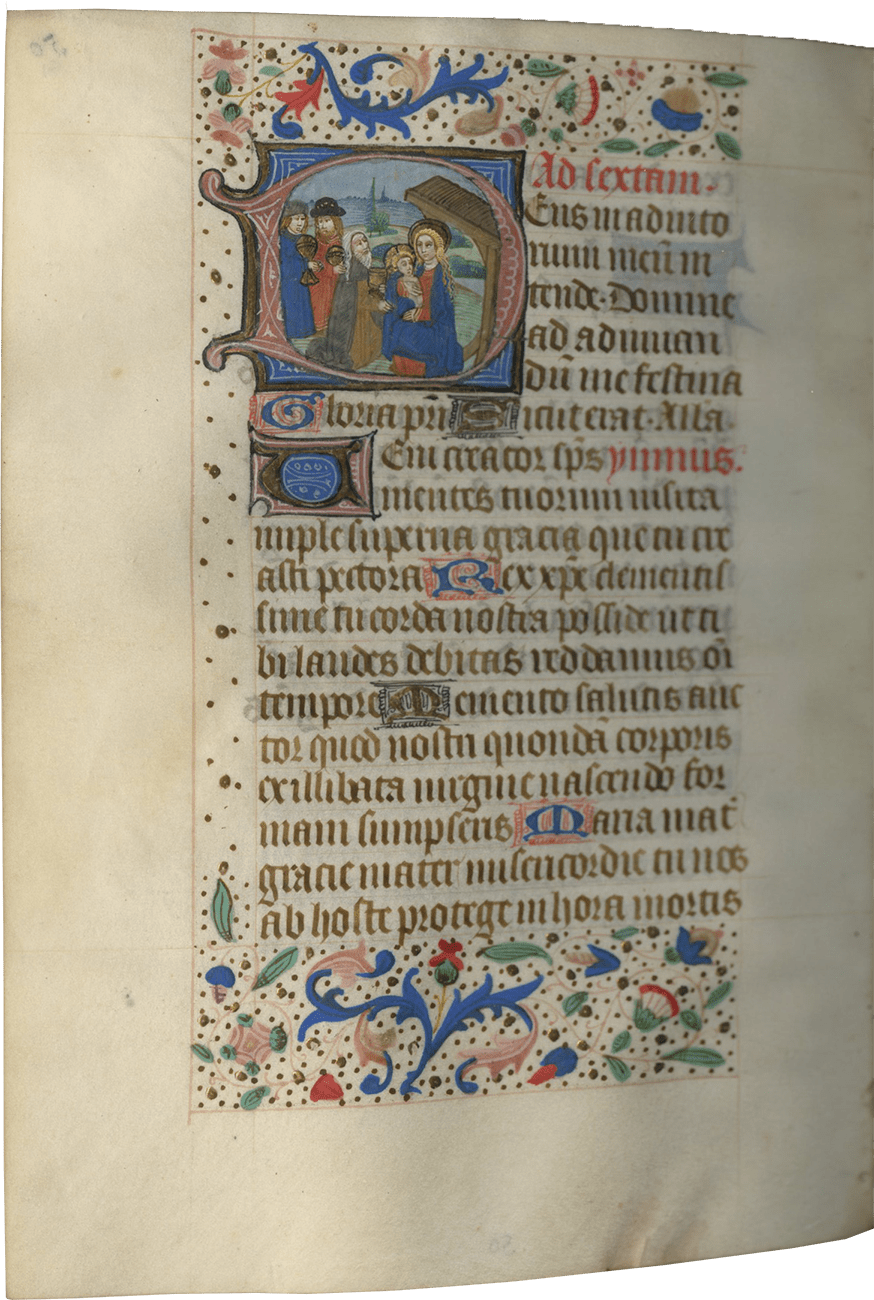 Ad sextam.
DEus in adiuto
rium meū in
tende. Domine
ad adiuuan
dū me festina
Gloria pr̄i Sicut erat. Alla.
VEni creator sp̄s ymnus.
mentes tuorum uisita
imple superna gracia que tu cre
asti pectora Rex xp̄e clementis
sime tu corda nostra posside ut ti
bi laudes debitas reddamus oī
tempore Memento salutis auc
tor quod nostri quondā corporis
ex illibata uirgine nascendo for
mam sumpseris Maria mat̄
gracie mater misericordie tu nos
ab hoste protege in hora mortis